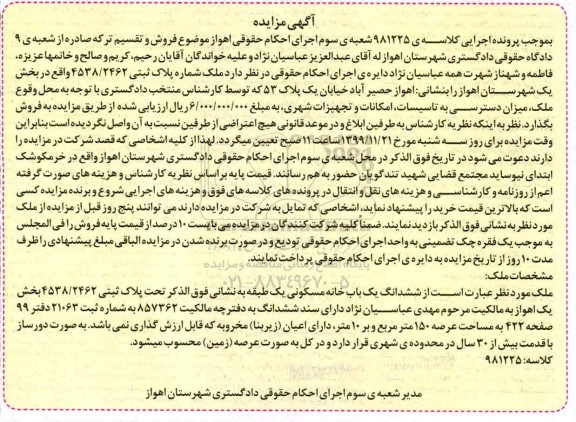 آگهی مزایده
بموجب پرونده اجرایی کلاسه ی ۹۸۱۲۲۵ شعبه ی سوم اجرای احکام حقوقی اهواز موضوع فروش و تقسیم ترکه صادره از شعبه ی ۹
دادگاه حقوقی دادگستری شهرستان اهواز له آقای عبدالعزیز عباسیان نژاد و علیه خواندگان آقایان رحیم، کریم و صالح و خانمها عزیزه،
فاطمه و شهناز شهرت همه عباسیان نژاد دایره ی اجرای احکام حقوقی در نظر دارد ملک شماره پلاک ثبتی ۴۵۳۸/۲۴۶۲ واقع در بخش
یک شهرستان اهواز را بنشانی: اهواز حصیر آباد خیابان یک پلاک ۵۳ که توسط کارشناس منتخب دادگستری با توجه به محل وقوع
ملک، میزان دسترسی به تاسیسات، امکانات و تجهیزات شهری، به مبلغ ۶/۰۰۰/۰۰۰/۰۰۰ ریال ارزیابی شده از طریق مزایده به فروش
بگذارد. نظر به اینکه نظریه کارشناس به طرفین ابلاغ و در موعد قانونی هیچ اعتراضی از طرفین نسبت به آن واصل نگردیده است بنابراین
وقت مزایده برای روز سه شنبه مورخ ۱۳۹۹/۱۱/۲۱ ساعت ۱۱ صبح تعیین میگردد. لهذا از کلیه اشخاصی که قصد شرکت در مزایده را
دارند دعوت می شود در تاریخ فوق الذکر در محل شعبه ی سوم اجرای احکام حقوقی دادگستری شهرستان اهواز واقع در خرمکوشک
ابتدای نیوساید مجتمع قضایی شهید تندگویان حضور به هم رسانند. قیمت پایه بر اساس نظریه کارشناس و هزینه های صورت گرفته
اعم از روزنامه و کارشناسی و هزینه های نقل و انتقال در پرونده های کلاسه های فوق و هزینه های اجرایی شروع و برنده مزایده کسی
است که بالاترین قیمت خرید را پیشنهاد نماید. اشخاصی که تمایل به شرکت در مزایده دارند می توانند پنج روز قبل از مزایده از ملک
مورد نظر به نشانی فوق الذکر بازدید نمایند. ضمنا کلیه شرکت کنندگان در مزایده می بایست ۱۰ درصد از قیمت پایه فروش را فی المجلس
به موجب یک فقره چک تضمینی به واحد اجرای احکام حقوقی تودیع و در صورت برنده شدن در مزایده الباقی مبلغ پیشنهادی را ظرف
مدت ۱۰ روز از تاریخ مزایده به دایره ی اجرای احکام حقوقی پرداخت نمایند.
۰۲۱-۸۸۳۴۹۶۷۰-۵
مشخصات ملک:
ملک مورد نظر عبارت است از ششدانگ یک باب خانه مسکونی یک طبقه به نشانی فوق الذکر تحت پلاک ثبتی ۴۵۳۸/۲۴۶۲ بخش
یک اهواز به مالکیت مرحوم مهدی عباسیان نژاد دارای سند ششدانگ به دفترچه مالکیت ۸۵۷۳۶۲ به شماره ثبت ۲۱۰۶۳ دفتر ۹۹
صفحه ۴۲۲ به مساحت عرصه ۱۵۰ متر مربع و بر ۱۰ متر، دارای اعیان (زیربنا) مخروبه که قابل ارزش گذاری نمی باشد. به صورت دورساز
با قدمت بیش از ۳۰ سال در محدوده ی شهری قرار دارد و در کل به صورت عرصه (زمین) محسوب میشود.
کلاسه: ۹۸۱۲۲۵
مدیر شعبه ی سوم اجرای احکام حقوقی دادگستری شهرستان اهواز